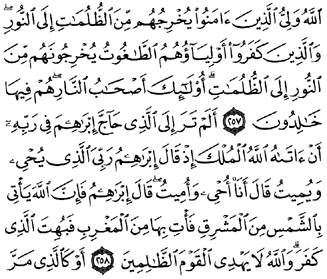 ٱللَّهُ وَلِىُّ ٱلَّذِينَ ءَامَنُوا۟ يُخْرِجُهُم مِّنَ ٱلظُّلُمَٰتِ إِلَى ٱلنُّورِ ۖ
وَٱلَّذِينَ كَفَرُوٓا۟ أَوْلِيَآؤُهُمُ ٱلطَّٰغُوتُ يُخْرِجُونَهُم مِّنَ
ٱلنُّورِ إِلَى ٱلظُّلُمَٰتِ ۗ أُو۟لَٰٓئِكَ أَصْحَٰبُ ٱلنَّارِ ۖ هُمْ فِيهَا
خَٰلِدُونَ ﴿٢٥٧﴾ أَلَمْ تَرَ إِلَى ٱلَّذِى حَآجَّ إِبْرَٰهِۦمَ فِى رَبِّهِۦٓ
أَنْ ءَاتَىٰهُ ٱللَّهُ ٱلْمُلْكَ إِذْ قَالَ إِبْرَٰهِۦمُ رَبِّىَ ٱلَّذِى يُحْىِۦ
وَيُمِيتُ قَالَ أَنَا۠ أُحْىِۦ وَأُمِيتُ ۖ قَالَ إِبْرَٰهِۦمُ فَإِنَّ ٱللَّهَ يَأْتِى
بِٱلشَّمْسِ مِنَ ٱلْمَشْرِقِ فَأْتِ بِهَا مِنَ ٱلْمَغْرِبِ فَبُهِتَ ٱلَّذِى
كَفَرَ ۗ وَٱللَّهُ لَا يَهْدِى ٱلْقَوْمَ ٱلظَّٰلِمِينَ ﴿٢٥٨﴾ أَوْ كَٱلَّذِى مَرَّ